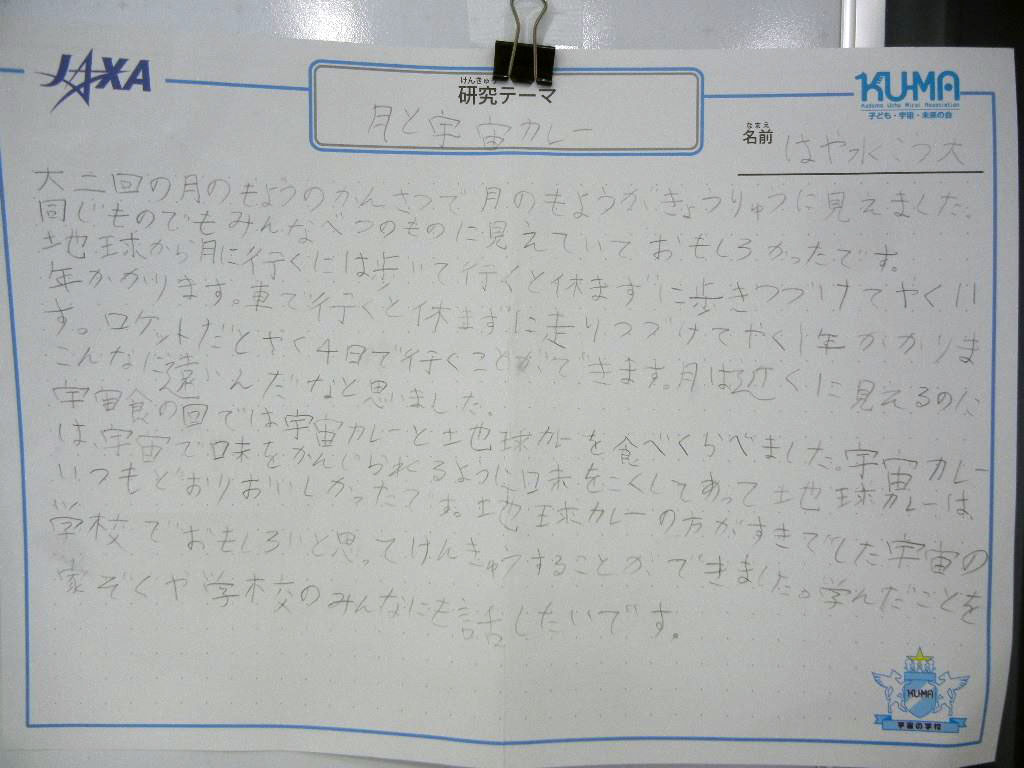 JAXA
けんきゅう
研究テーマ
月と宇宙カレー
KUMA
Kodomo Uchu Mirai Association
子ども・宇宙・未来の会
なまえ
名前
はや水 こう大
大二回の月のもようのかんさつで月のもようが、きょうりゅうに見えました。
同じものでもみんなべつのものに見えていておもしろかったです。
地球から月に行くには歩いて行くと休まずに歩きつづけてやく11
年かかります。車で行くと休まずに走りつづけてやく1年かかりま
す。ロケットだとやく4日で行くことができます。月は近くに見えるのに
こんなに遠いんだなと思いました。
宇宙食の回では宇宙カレーと地球カレーを食べくらべました。宇宙カレー
は、宇宙で味をかんじられるように味をこくしてあって地球カレーは、
いつもどおりおいしかったです。地球カレーの方がすきでした宇宙の
学校でおもしろいと思ってけんきゅうすることができました。学んだことを
家ぞくや学校のみんなにも話したいです。
KUMA
宇宙の学校